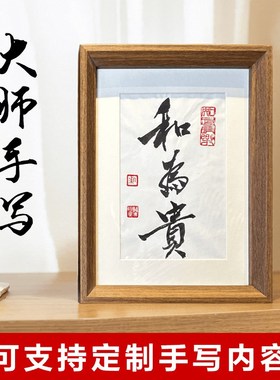 大师手写
和為貴
可支持定制手写内容